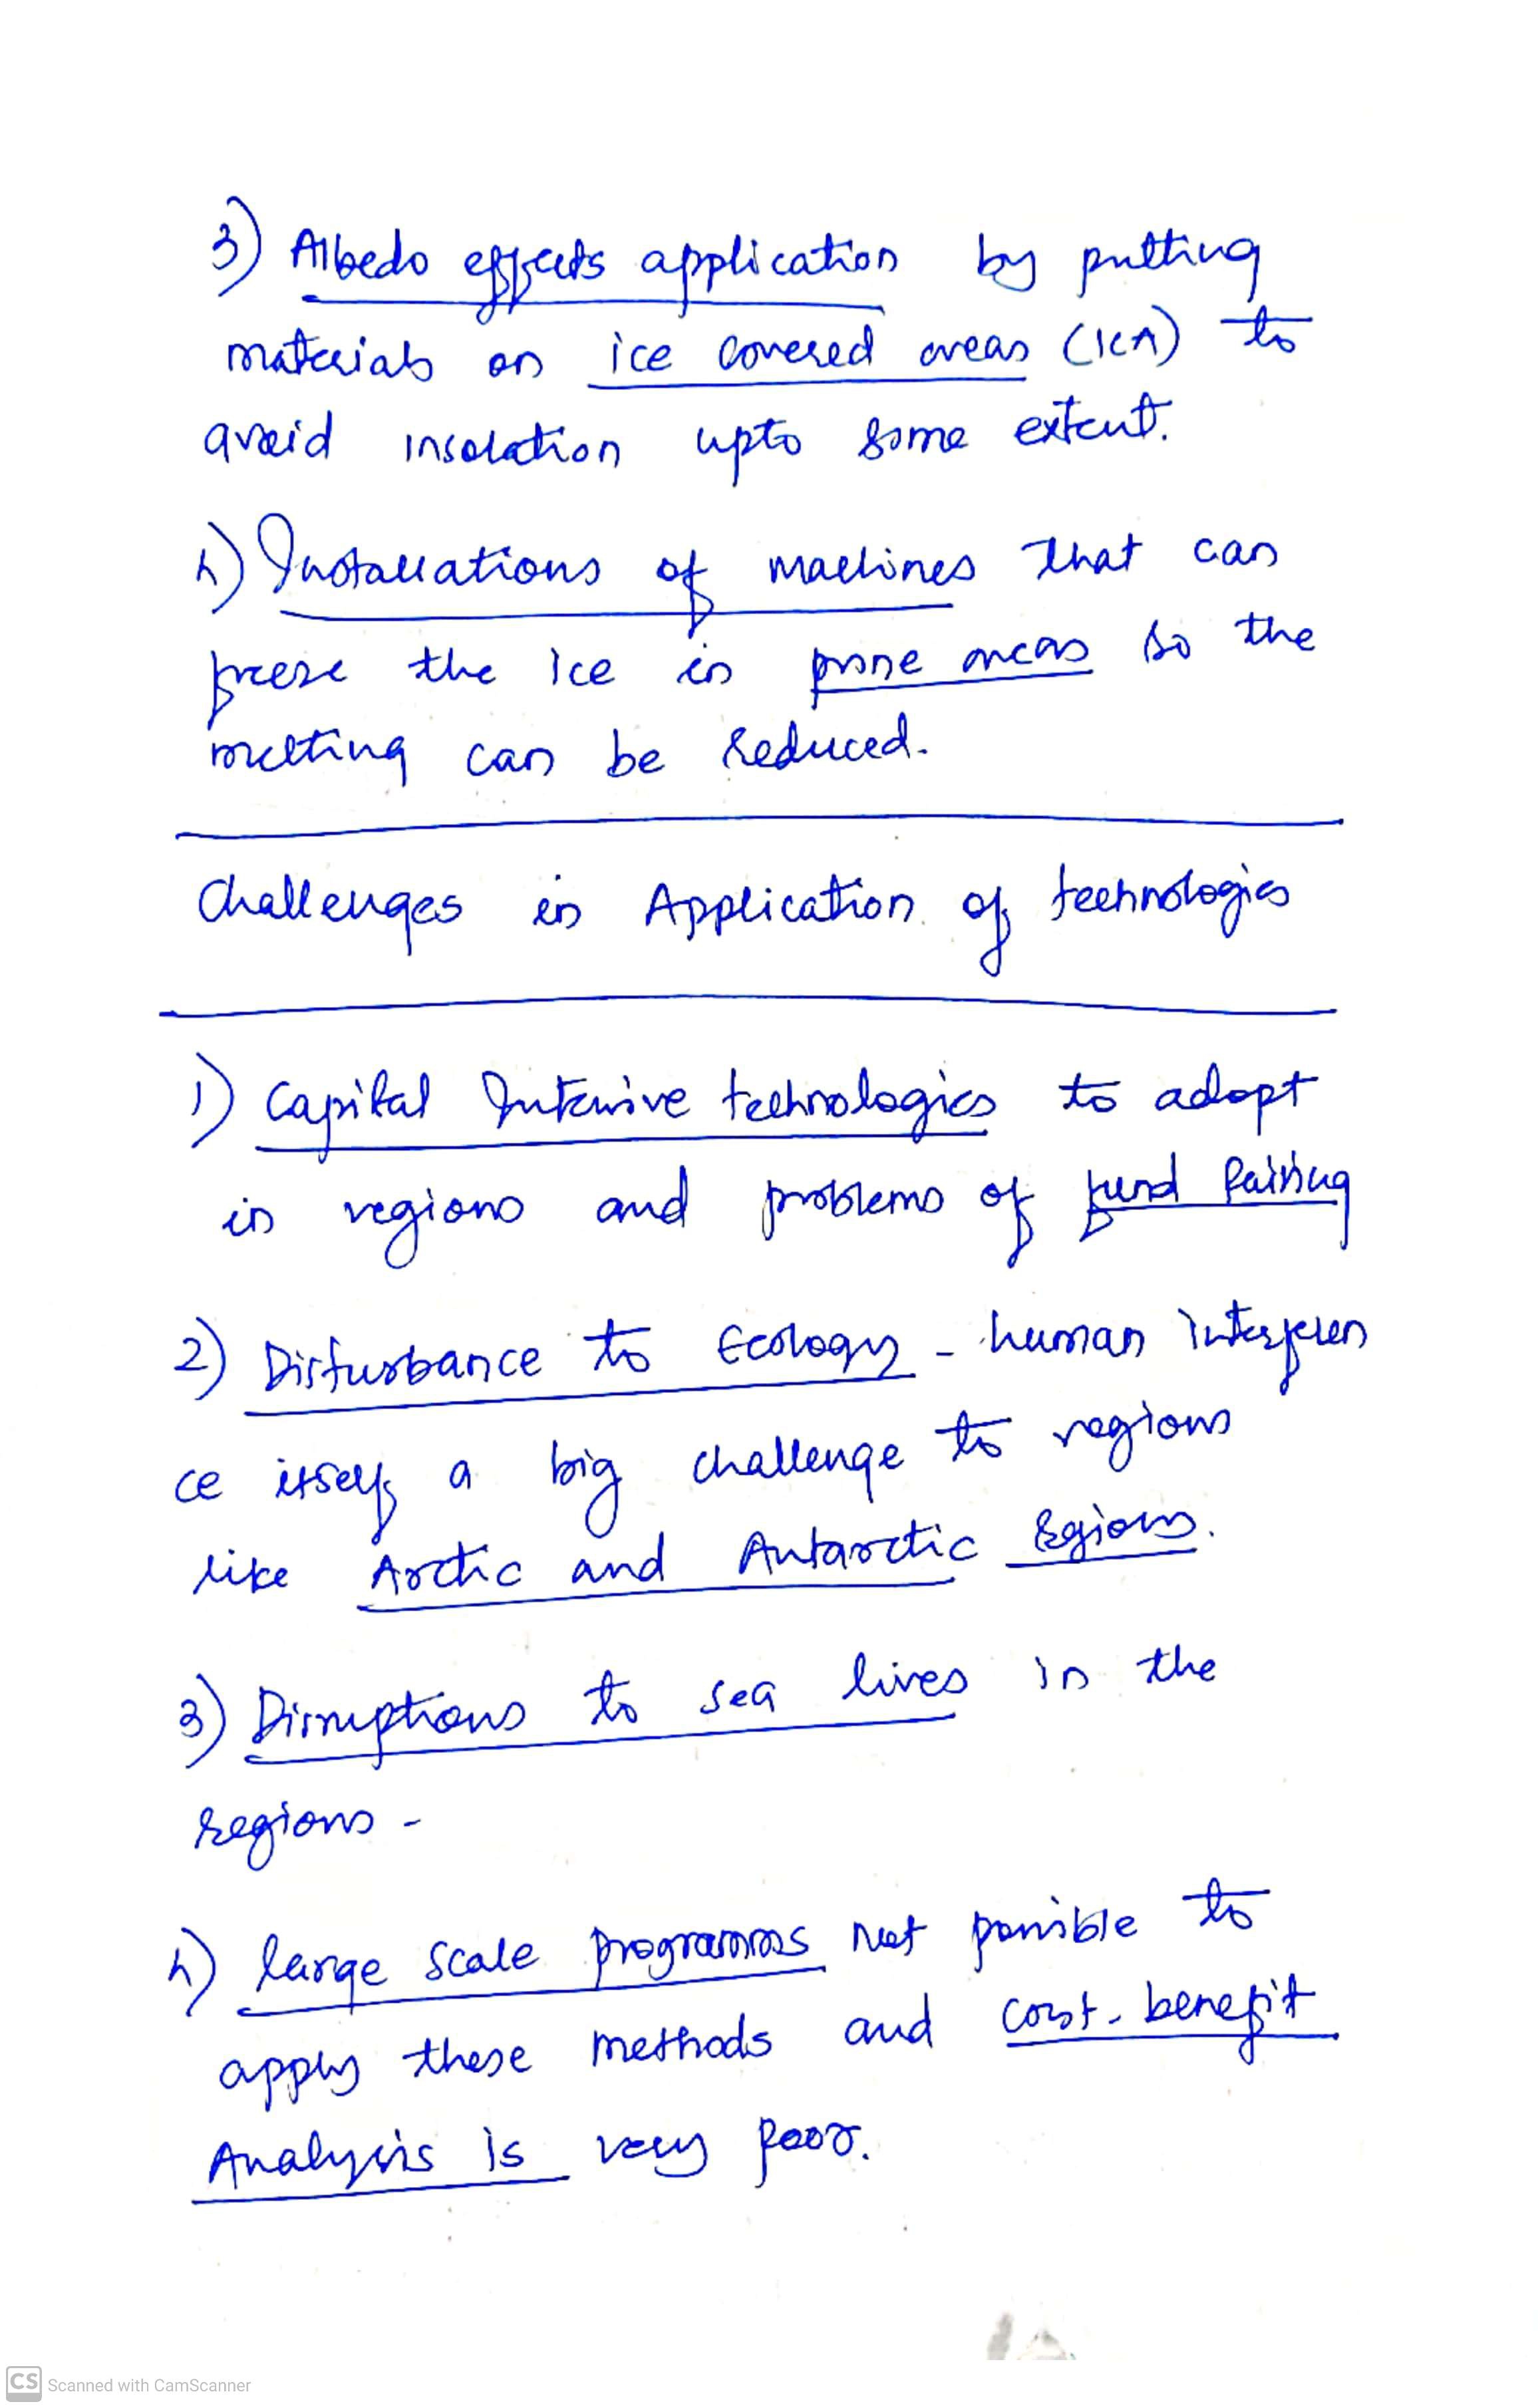 3) Albedo effects application by putting
materials on ice covered areas (ICA) to
avoid insolation upto some extent.
4) Installations of machines that can
freeze the ice in prone areas so the
melting can be reduced.
Challenges in Application of technologies
1) Capital Intensive technologies to adopt
in regions and problems of fund raising
2) Disturbance to Ecology - human interferen
ce itself a big challenge to regions
like Arctic and Antarctic regions.
3) Disruptions to sea lives in the
regions -
4) large scale programms not possible to
apply these methods and cost-benefit
Analysis is very poor.
CS Scanned with CamScanner